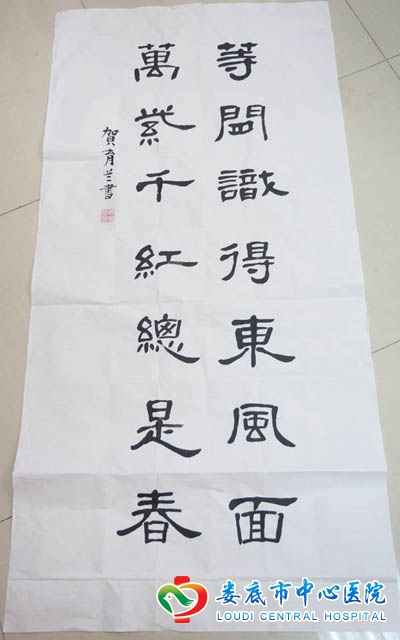 等閒識得東風面
萬紫千紅總是春
賀育兰書
娄底市中心医院
LOUDI CENTRAL HOSPITAL